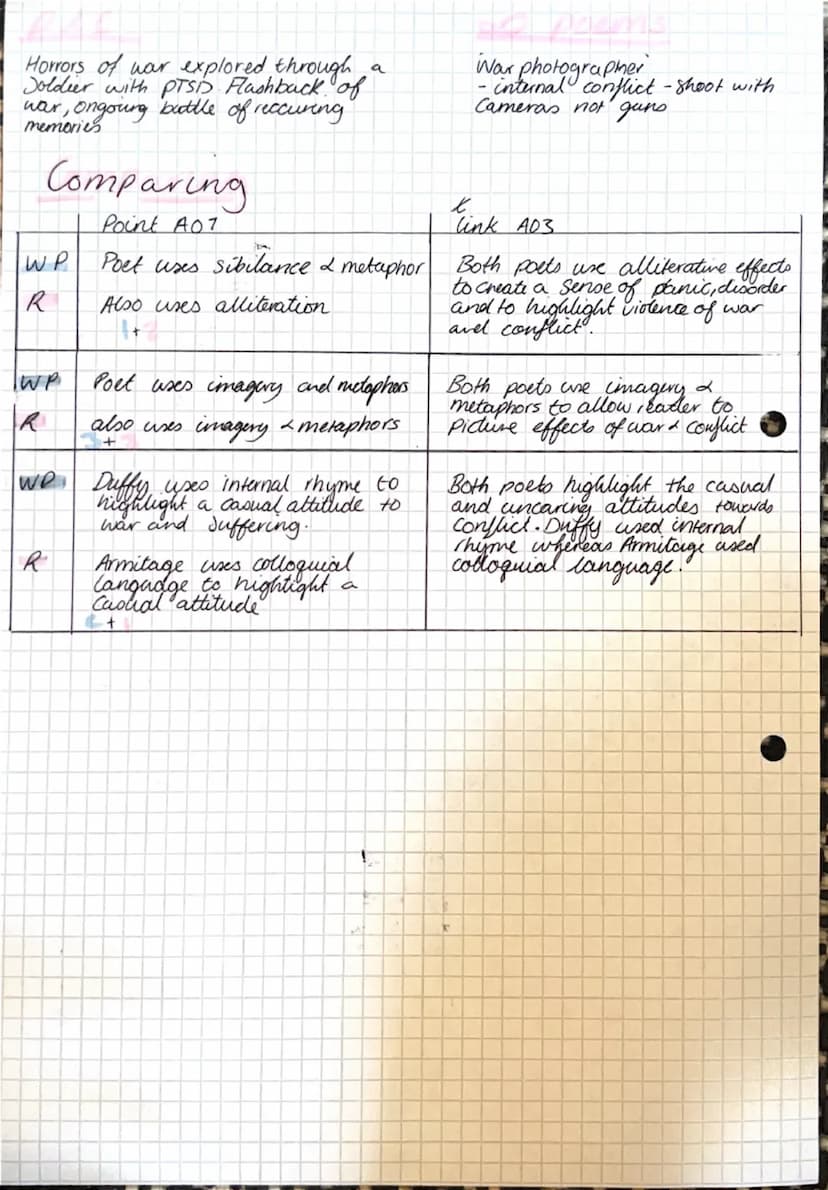 poems
Horrors of war explored through a
soldier with PTSD. Flashback of
war, ongoing battle of reccuring
memories
War photographer
- internal conflict - shoot with
cameras not guns
Comparing
Point AO1
link AO3
WP
Poet uses sibilance & metaphor
R
Also uses alliteration
1 + 2
Both poets use alliterative effects
to create a sense of panic, disorder
and to highlight violence of war
and conflict.
WP
Poet uses imagery and metaphors
R
also uses imagery & metaphors
3 + 3
Both poets use imagery &
metaphors to allow reader to
picture effects of war & conflict
WP
Duffy uses internal rhyme to
highlight a casual attitude to
war and suffering.
R
Armitage uses colloquial
language to hightight a
casual attitude
+
Both poets highlight the casual
and uncaring attitudes towards
conflict. Duffy used internal
rhyme whereas Armitage used
colloquial language.